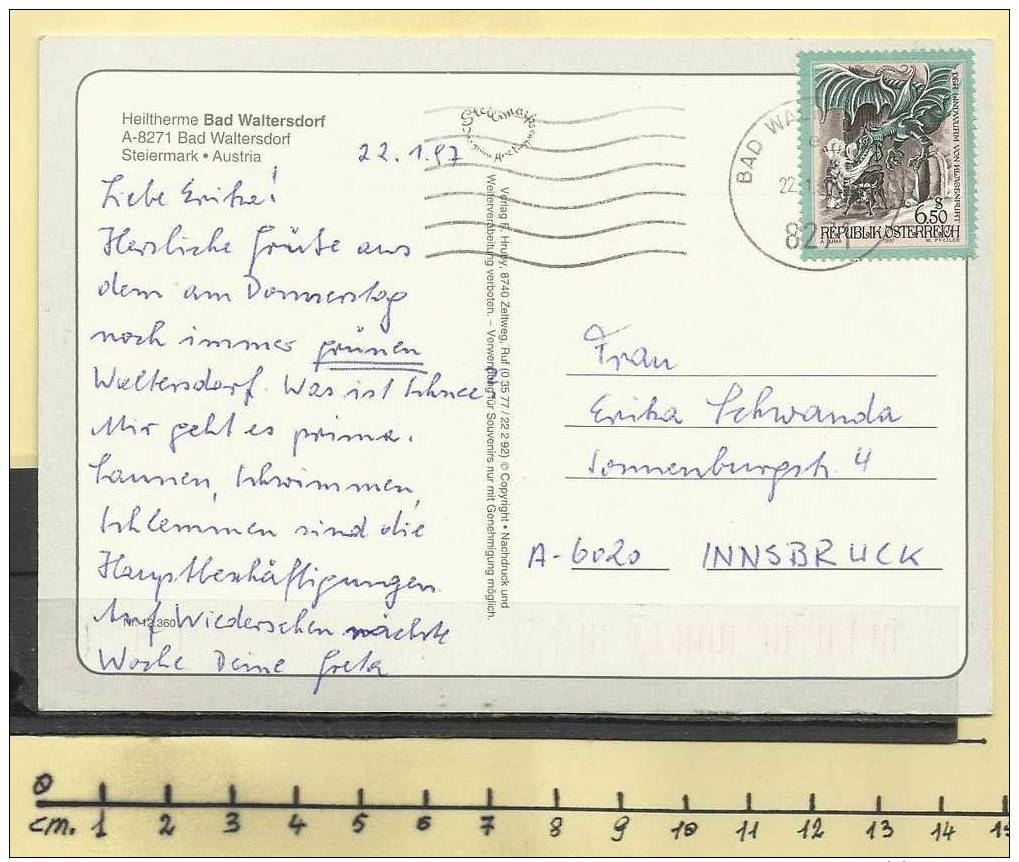 Heiltherme Bad Waltersdorf
A-8271 Bad Waltersdorf
Steiermark • Austria
22.1.97
Liebe Erika!
Herzliche Grüße aus
dem am Donnerstag
noch immer grünen
Waltersdorf. Was ist Schnee
Mir geht es prima.
Saunen, Schwimmen,
Schlemmen sind die
Hauptbeschäftigungen
Auf Wiedersehen nächste
Woche Deine Greta
Nr. 12360
Verlag F. Hruby, 8740 Zeltweg, Ruf (0 35 77 / 22 2 92) © Copyright • Nachdruck und
Weiterverarbeitung verboten. – Verwendung für Souvenirs nur mit Genehmigung möglich.
Steiermark
BAD WAL
22. 1
8271
DER LINDWURM VON KLAGENFURT
S
6.50
REPUBLIK ÖSTERREICH
1997
W. PFEILER
Frau
Erika Schwanda
Sonnenburgstr. 4
A-6020 INNSBRUCK
0
cm. 1 2 3 4 5 6 7 8 9 10 11 12 13 14 15